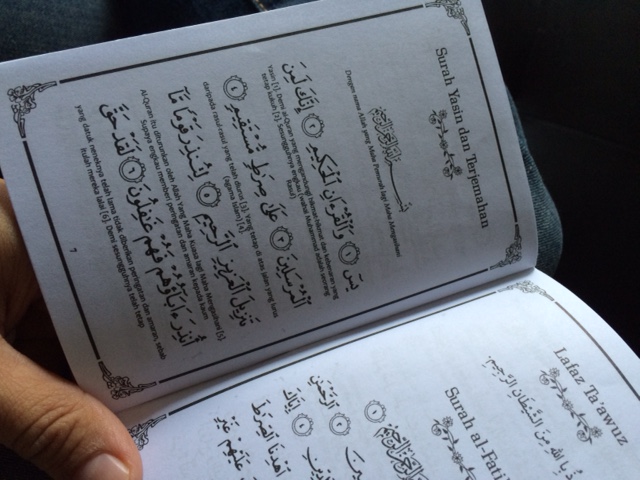 Surah Yasin dan Terjemahan
بِسْمِ ٱللَّهِ ٱلرَّحْمَٰنِ ٱلرَّحِيمِ
Dengan nama Allah yang Maha Pemurah lagi Maha Mengasihani
يسٓ ١ وَٱلْقُرْءَانِ ٱلْحَكِيمِ ٢ إِنَّكَ لَمِنَ
Yasin [1]. Demi al-Quran yang mengandungi hikmat-hikmat dan kebenaran yang
tetap kukuh [2]. Sesungguhnya engkau (wahai Muhammad adalah seorang
Rasul)
ٱلْمُرْسَلِينَ ٣ عَلَىٰ صِرَٰطٍ مُّسْتَقِيمٍ ٤
daripada rasul-rasul yang telah diutus [3]. Yang tetap di atas jalan yang lurus
(agama Islam) [4]
تَنزِيلَ ٱلْعَزِيزِ ٱلرَّحِيمِ ٥ لِتُنذِرَ قَوْمًا مَّآ
Al-Quran itu diturunkan oleh Allah Yang Maha Kuasa lagi Maha Mengasihani [5]
Supaya engkau memberi peringatan dan amaran kepada kaum
أُنذِرَ ءَابَآؤُهُمْ فَهُمْ غَٰفِلُونَ ٦ لَقَدْ حَقَّ
yang datuk neneknya telah lama tidak diberikan peringatan dan amaran, sebab
itulah mereka lalai [6]. Demi sesungguhnya telah tetap
7
Lafaz Ta'awuz
بِاللهِ مِنَ الشَّيْطَانِ الرَّجِيْمِ
Surah al-Fati
ٱلرَّحِيمِ ١
ٱلرَّحْمَٰنِ ٢
إِيَّاكَ ٤
ٱهْدِنَا ٱلصِّرَٰطَ
عَلَيْهِمْ غَيْرِ